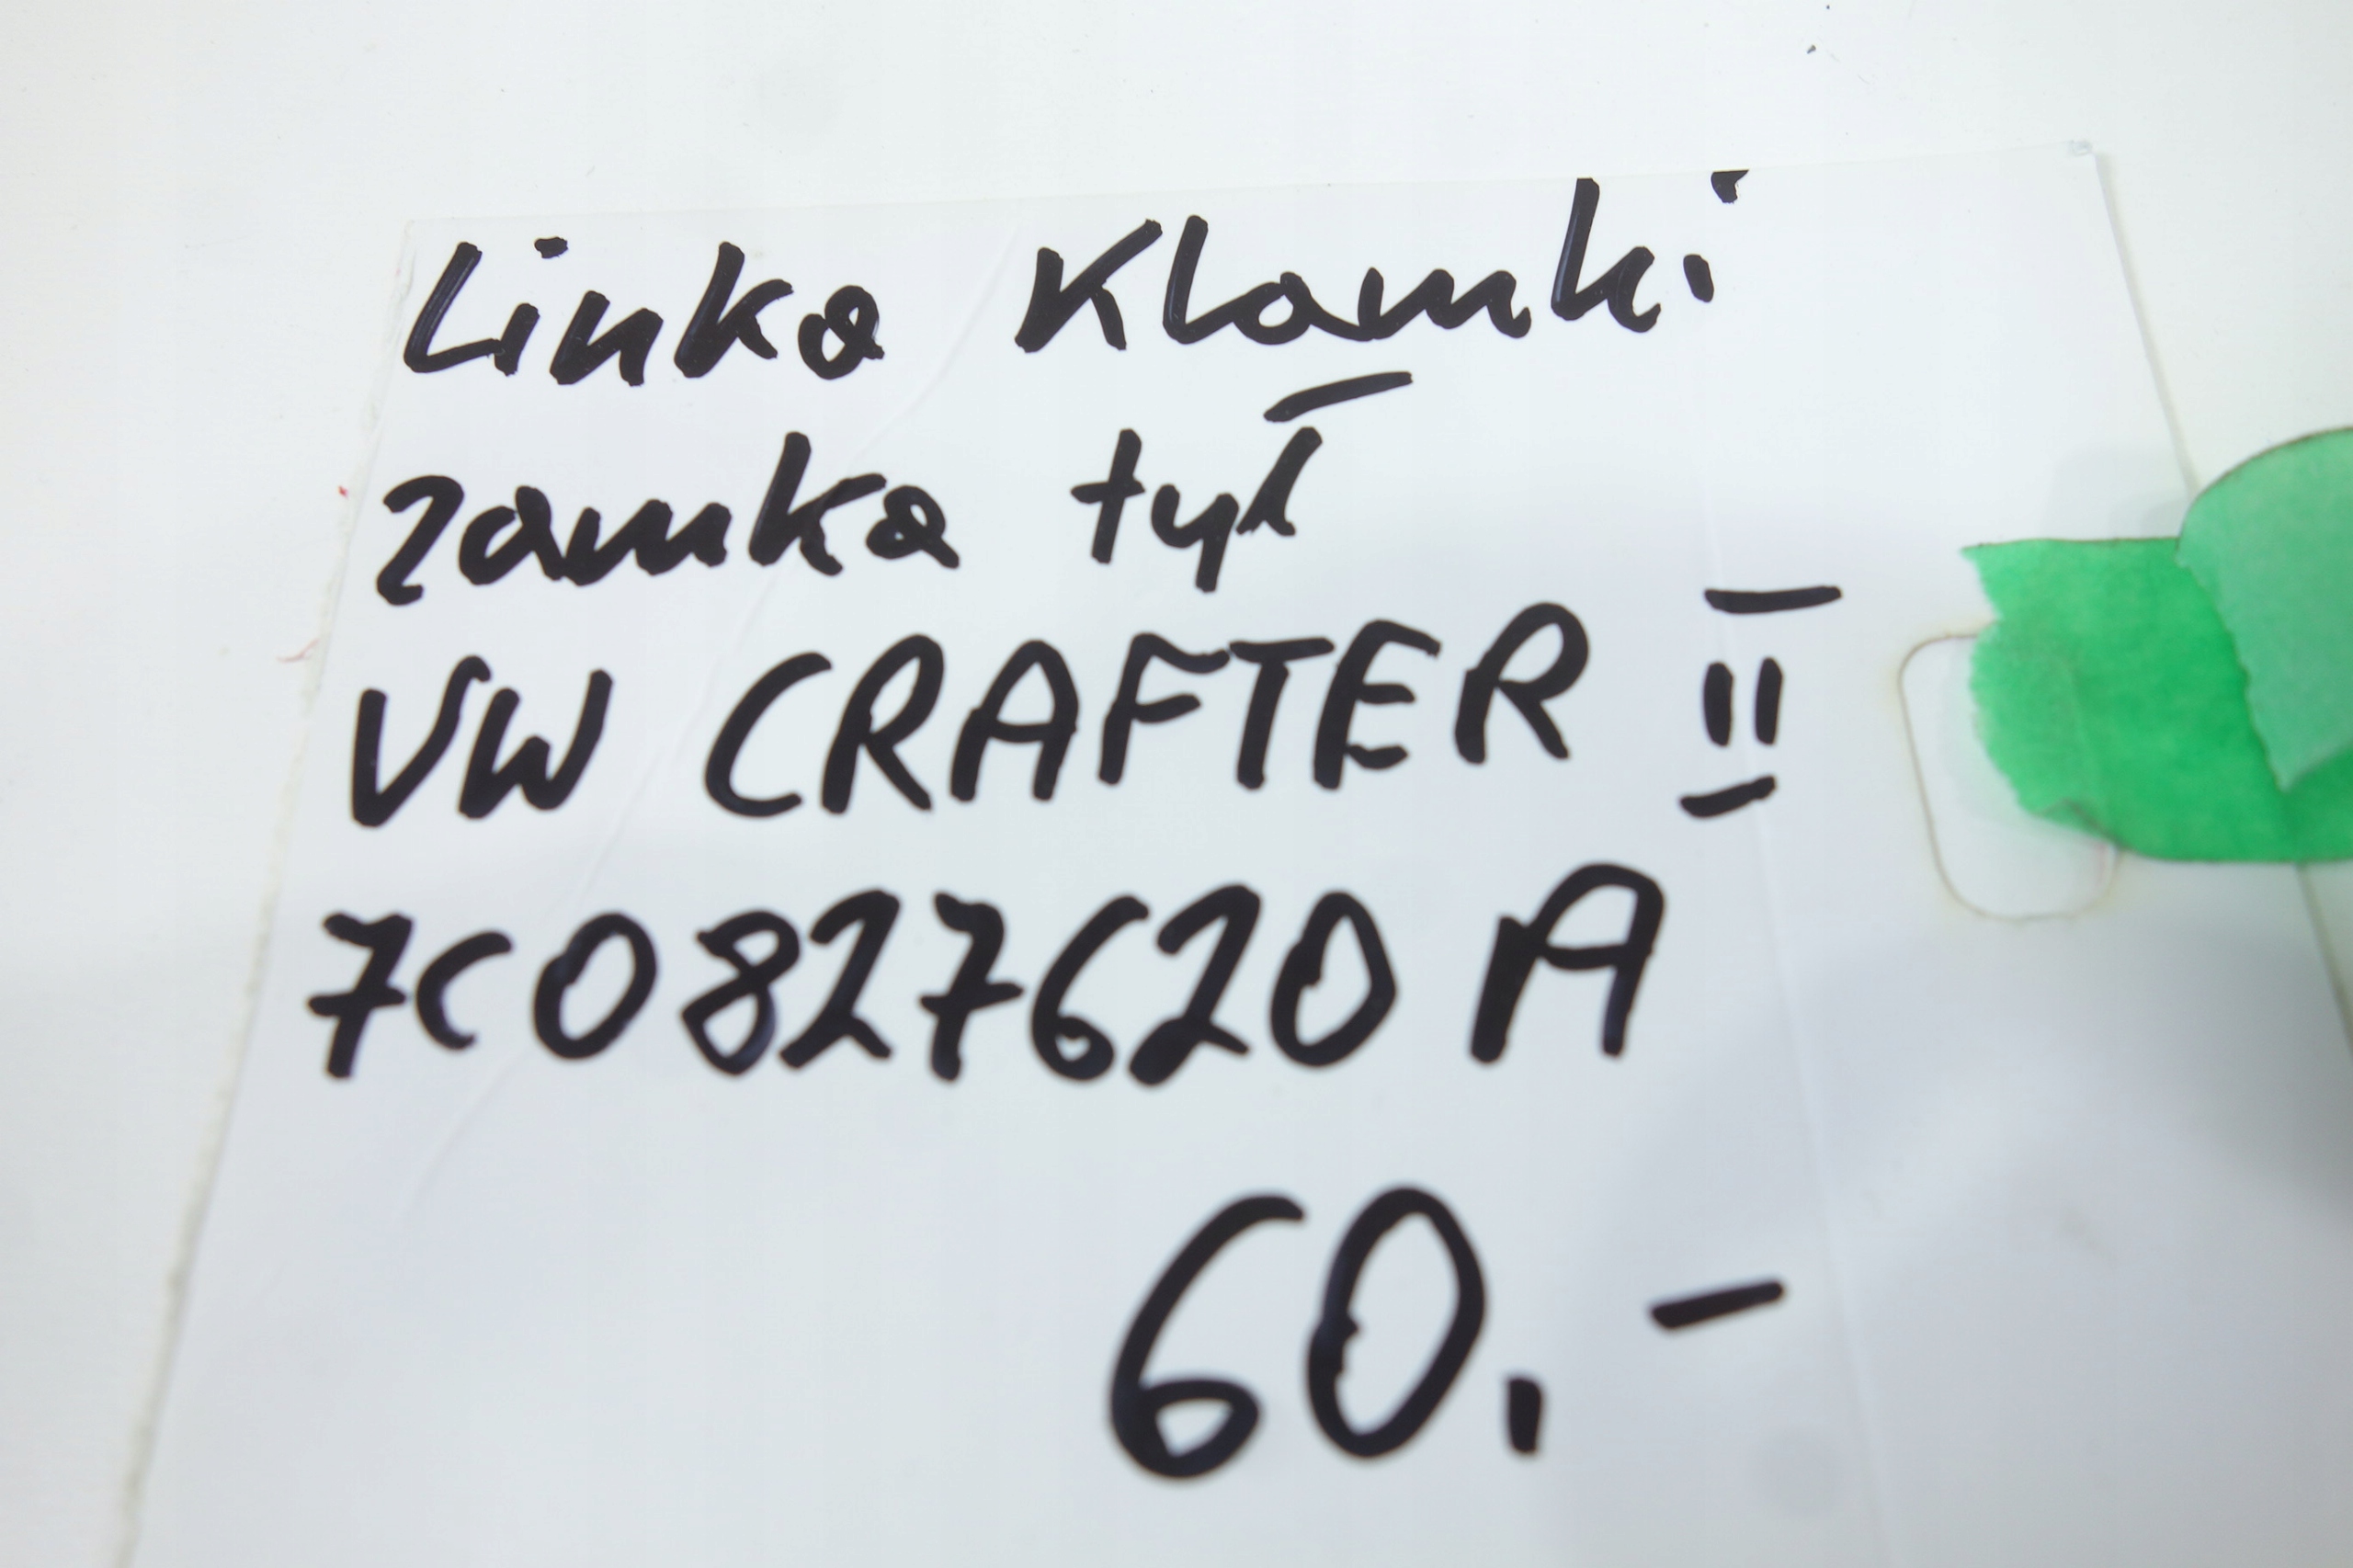 Linka Klamki
zamka tył
VW CRAFTER II
7C0827620 A
60.-